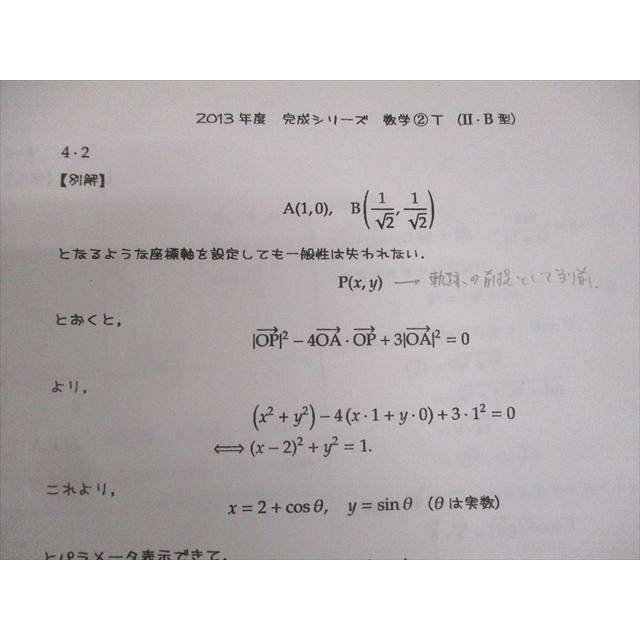 2013年度 完成シリーズ 数学②T (II・B型)
4・2
【別解】
A(1,0), B(1/√2, 1/√2)
となるような座標軸を設定しても一般性は失われない.
P(x, y) → 軌跡への前提として当り前.
とおくと,
|OP→|² − 4OA→・OP→ + 3|OA→|² = 0
より,
(x² + y²) − 4(x・1 + y・0) + 3・1² = 0
⟺ (x − 2)² + y² = 1.
これより,
x = 2 + cos θ, y = sin θ (θは実数)
とパラメータ表示できて,